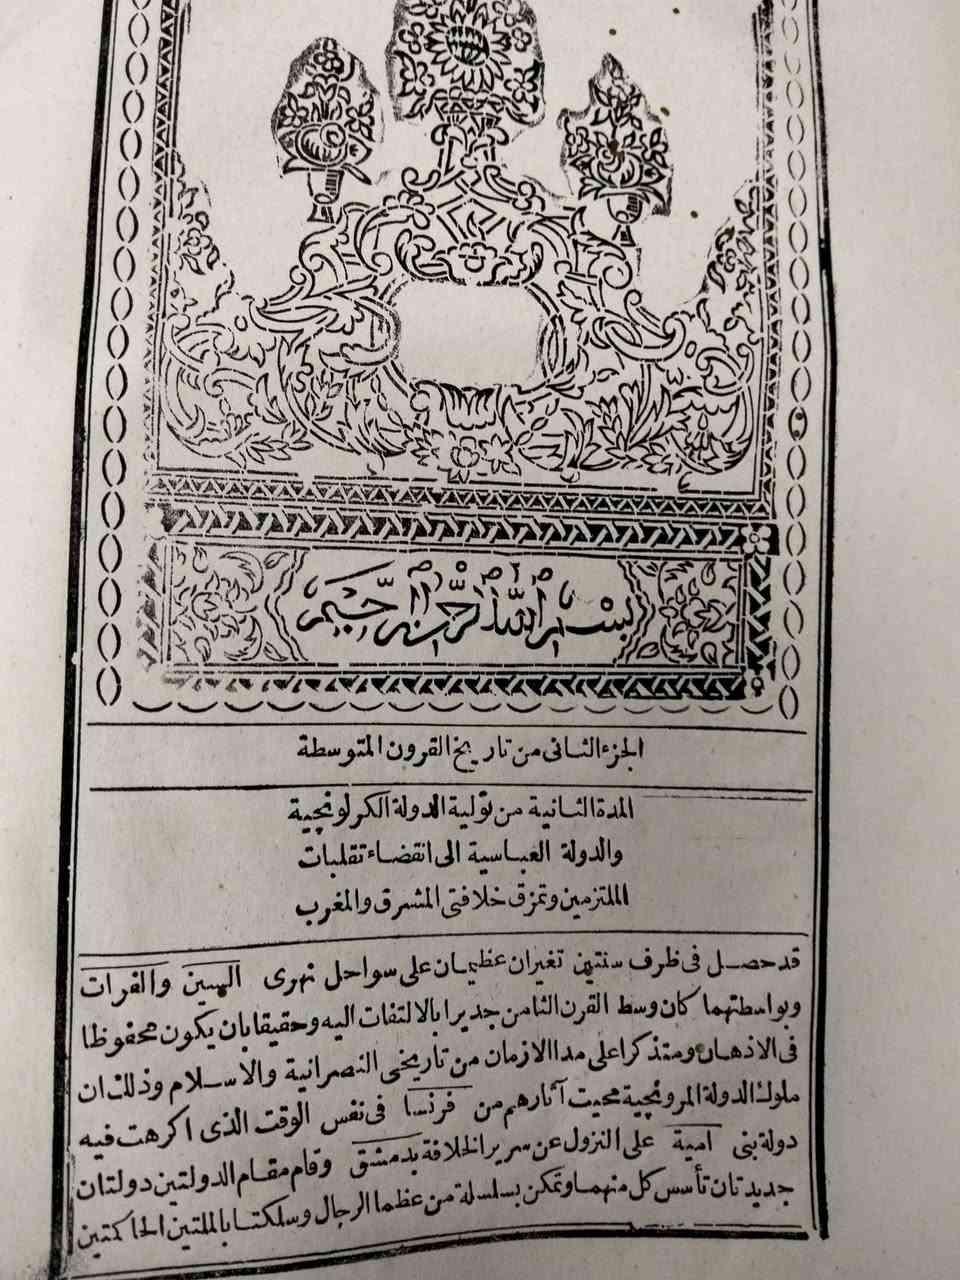 بسم الله الرحمن الرحيم
الجزء الثانى من تاريخ القرون المتوسطة
المدة الثانية من تولية الدولة الكرلونجية
والدولة العباسية الى انقضاء تقلبات
الملتزمين وتمزق خلافتى المشرق والمغرب
قد حصل فى ظرف سنتين تغيران عظيمان على سواحل نهرى السين والفرات
وبواسطتهما كان وسط القرن الثامن جديرا بالالتفات اليه وحقيقا بان يكون محفوظا
فى الاذهان ومتذكرا على مدا الازمان من تاريخى النصرانية والاسلام وذلك ان
ملوك الدولة المرونجية محيت آثارهم من فرنسا فى نفس الوقت الذى اكرهت فيه
دولة بنى امية على النزول عن سرير الخلافة بدمشق وقام مقام الدولتين دولتان
جديدتان تأسس كل منهما وتمكن بسلسلة من عظما الرجال وسلكتا بالملتين الحاكمتين